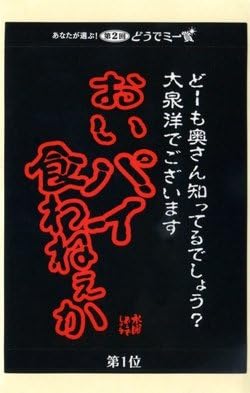 あなたが選ぶ! 第2回 どうでミー賞
どーも奥さん知ってるでしょう?
大泉洋でございます
おいパイ
食わねぇか
第1位